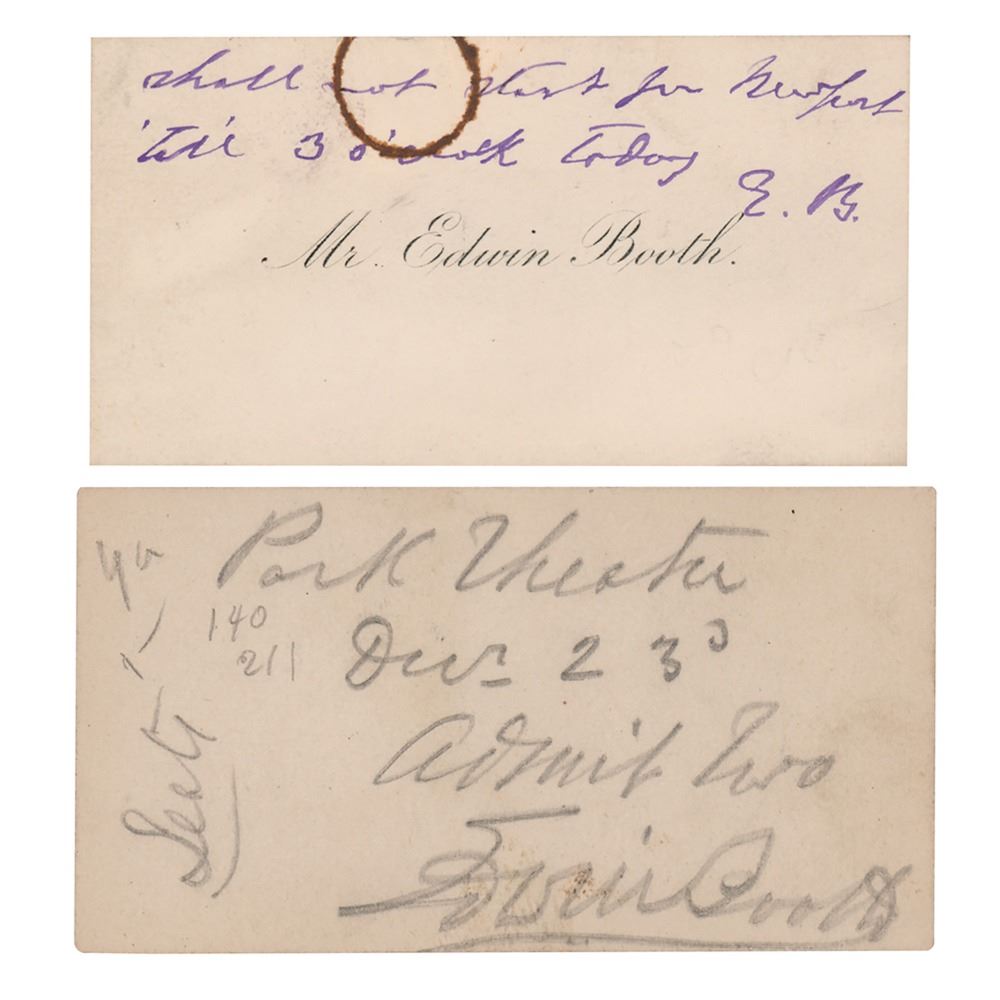 shall not start for Newport
'till 3 o'clock today
E. B.
Mr. Edwin Booth.
Park Theatre
140
211
Decr 23d
Admit Two
Edwin Booth
Seats